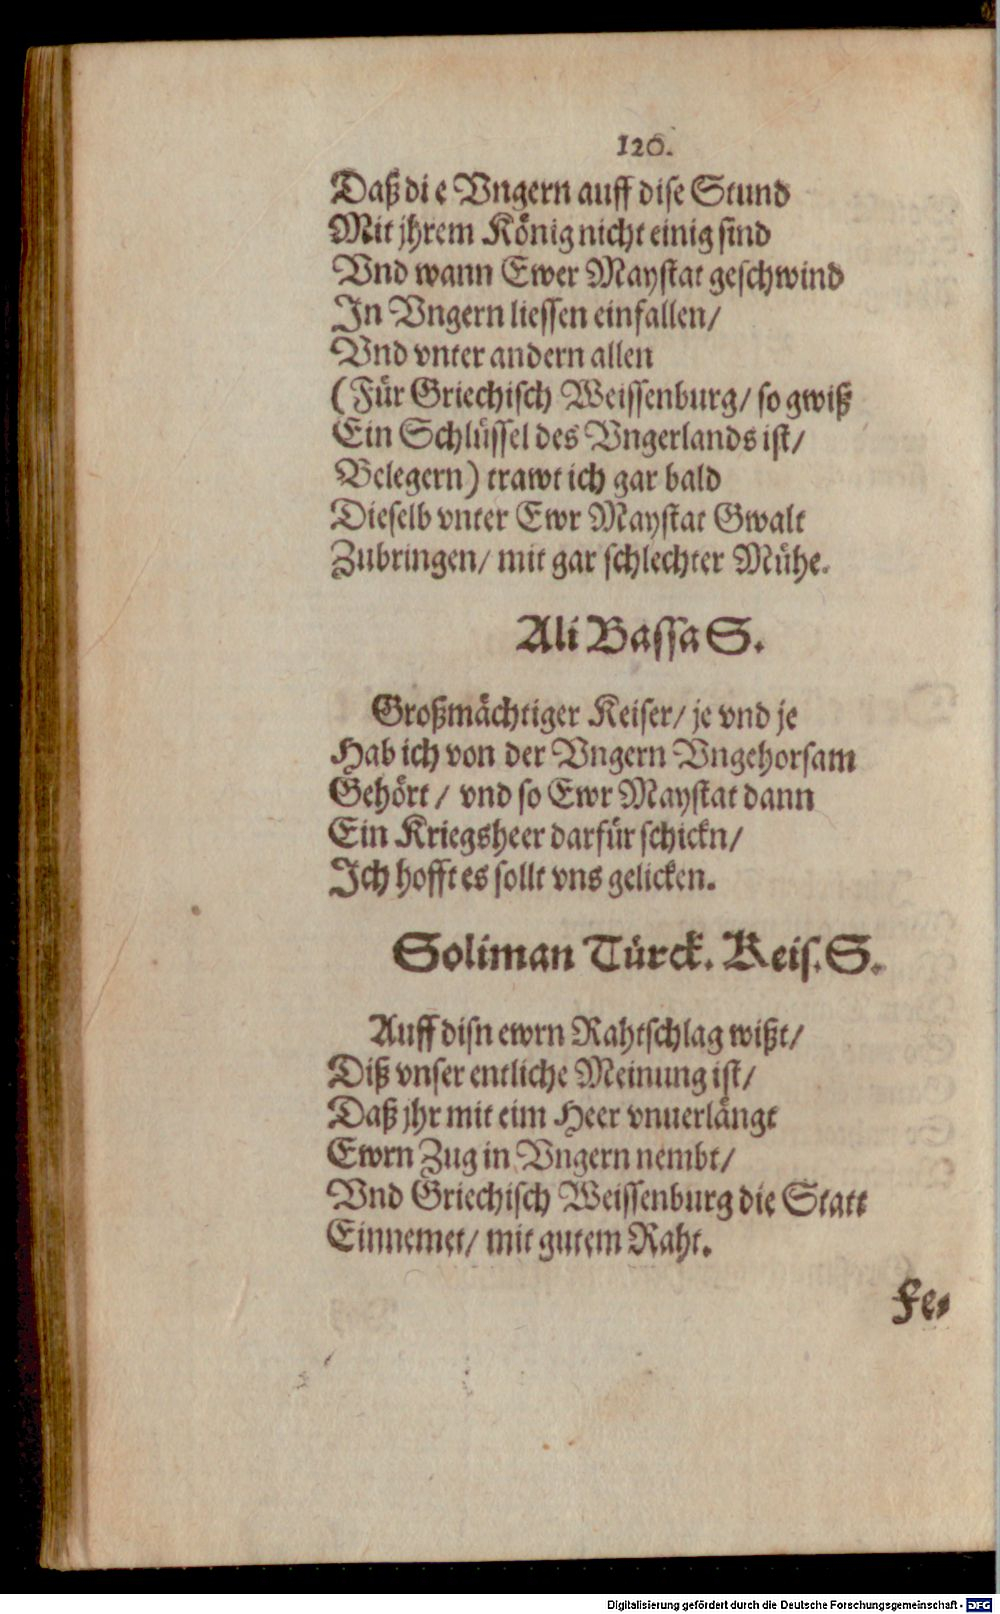 126.
Daß di e Vngern auff dise Stund
Mit jhrem König nicht einig sind
Vnd wann Ewer Maystat geschwind
In Vngern liessen einfallen/
Vnd vnter andern allen
(Für Griechisch Weissenburg/ so gwiß
Ein Schlüssel des Vngerlands ist/
Belegern) trawt ich gar bald
Dieselb vnter Ewr Maystat Gwalt
Zubringen/ mit gar schlechter Mühe.
Ali Bassa S.
Großmächtiger Keiser/ je vnd je
Hab ich von der Vngern Vngehorsam
Gehört / vnd so Ewr Maystat dann
Ein Kriegsheer darfür schickn/
Ich hofft es sollt vns gelicken.
Soliman Türck. Keis. S.
Auff disn ewrn Rahtschlag wißt/
Diß vnser entliche Meinung ist/
Daß jhr mit eim Heer vnuerlängt
Ewrn Zug in Vngern nembt/
Vnd Griechisch Weissenburg die Statt
Einnemet/ mit gutem Raht.
Fe-
Digitalisierung gefördert durch die Deutsche Forschungsgemeinschaft - DFG